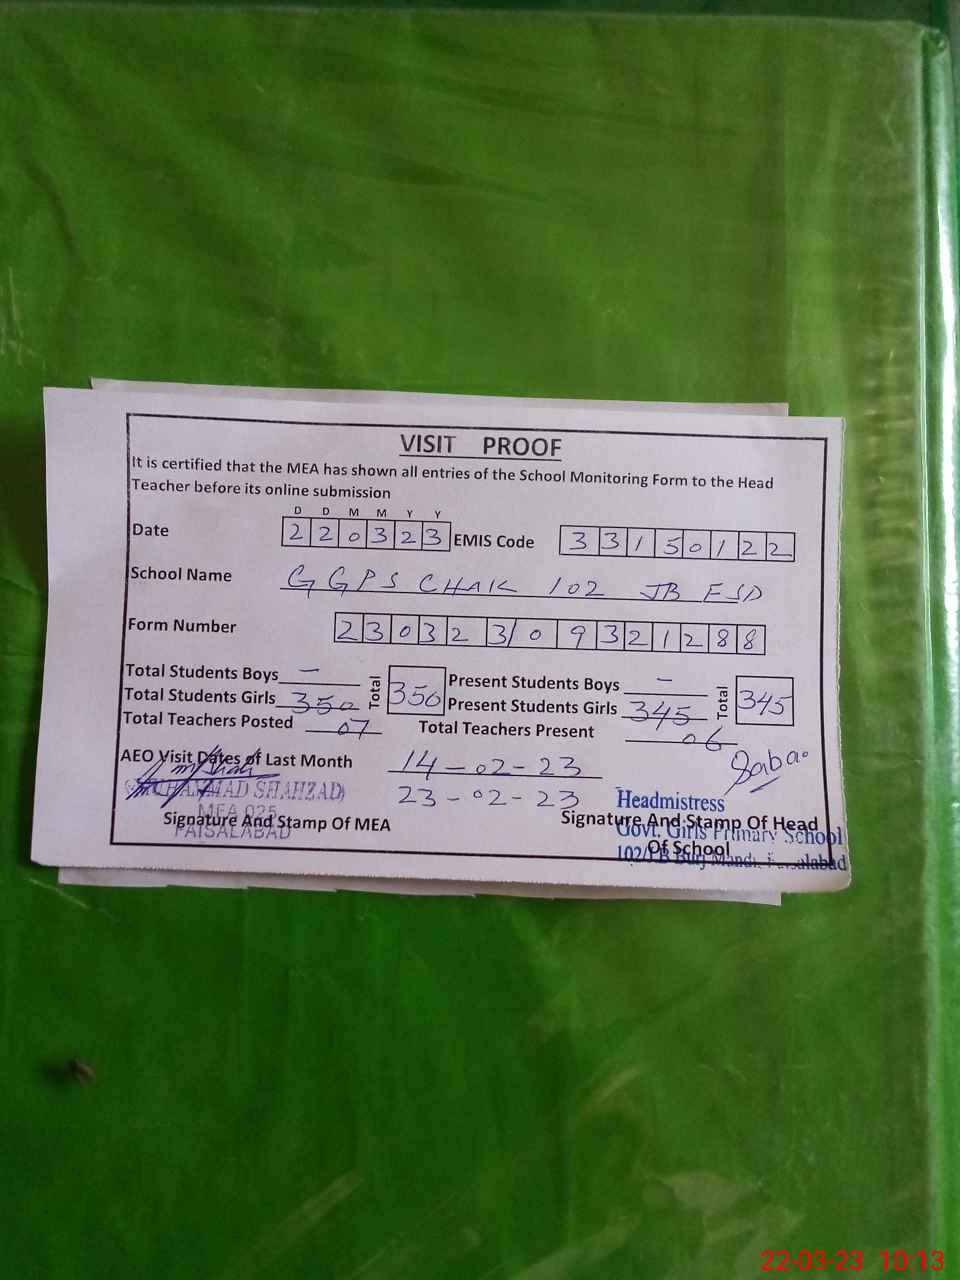 VISIT PROOF
It is certified that the MEA has shown all entries of the School Monitoring Form to the Head
Teacher before its online submission
D D M M Y Y
Date 2 2 0 3 2 3 EMIS Code 3 3 1 5 0 1 2 2
School Name G GPS CHAK 102 JB FSD
Form Number 2 3 0 3 2 3 1 0 9 3 2 1 2 8 8
Total Students Boys — Total 350 Present Students Boys — Total 345
Total Students Girls 350 Present Students Girls 345
Total Teachers Posted 07 Total Teachers Present 06
AEO Visit Dates of Last Month 14-02-23
23-02-23
Saba
MUHAMMAD SHAHZAD)
MEA 025
FAISALABAD
Signature And Stamp Of MEA
Headmistress
Govt. Girls Primary School
102/JB Burj Mandi, Faisalabad
Signature And Stamp Of Head
Of School
22-03-23 10:13